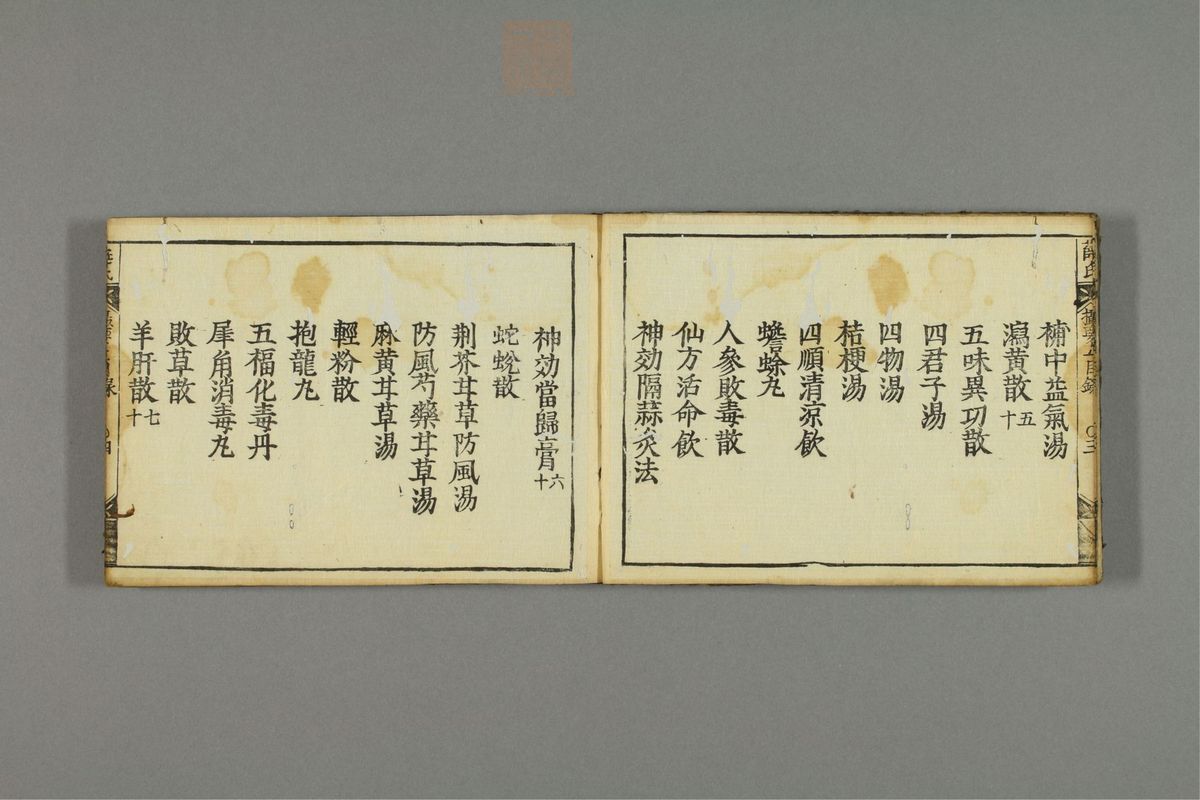 補中益氣湯
瀉黄散 十五
五味異功散
四君子湯
四物湯
桔梗湯
四順清涼飲
蟾蜍丸
人參敗毒散
仙方活命飲
神効隔蒜灸法
神効當歸膏 十六
蛇蛻散
荆芥甘草防風湯
防風芍藥甘草湯
麻黄甘草湯
輕粉散
抱龍丸
五福化毒丹
犀角消毒丸
敗草散
羊肝散 十七